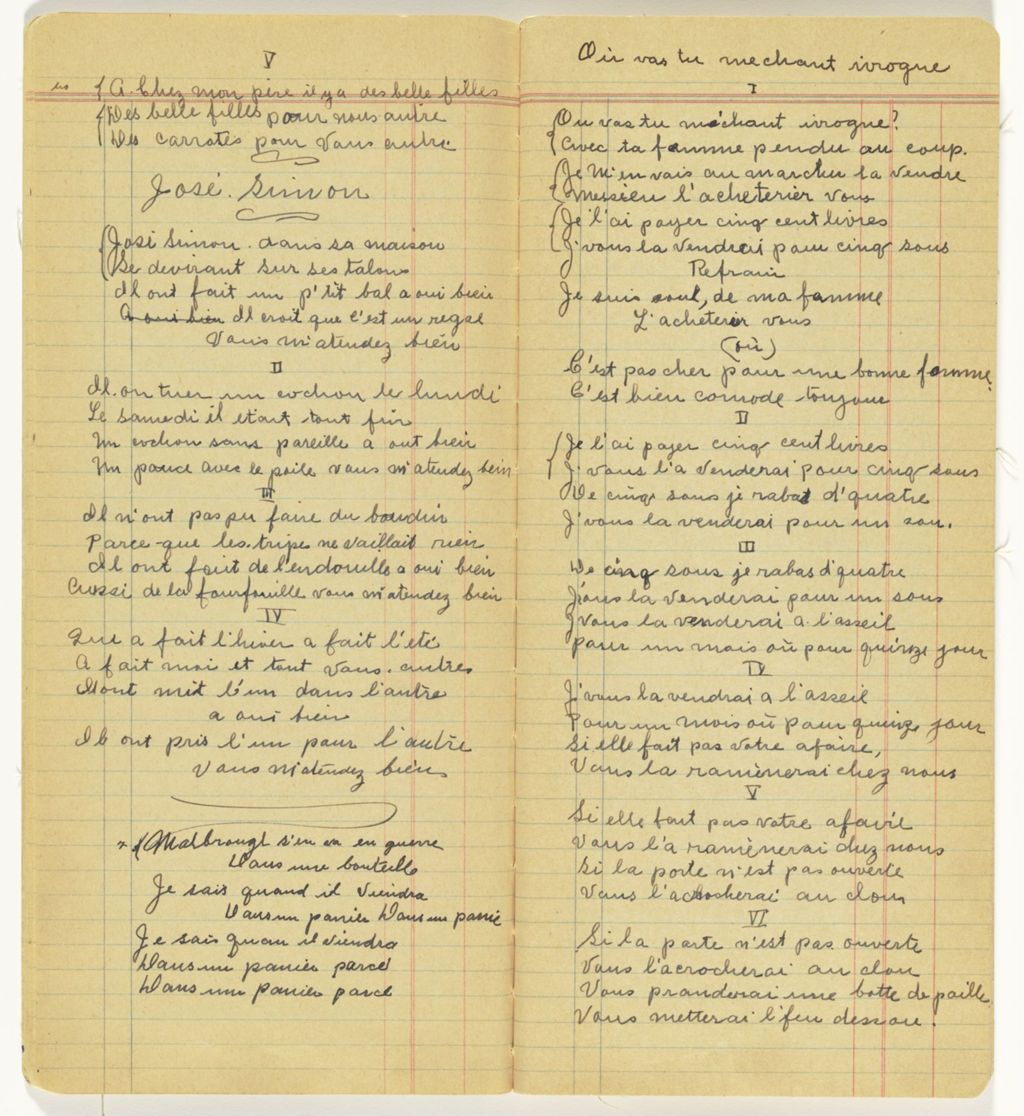 V
bis { A. Chez mon père il y a des belle filles
{ Des belle filles pour nous autre
Des carrotes pour vous autre
José. Simon
{ José Simon. dans sa maison
Se devirant sur ses talons
Il ont fait un p'tit bal a oui bien
A oui bien Il croit que c'est un regal
Vous m'atendez bien
II
Il. on tuer un cochon le lundi
Le samedi il etait tout fin
Un cochon sans pareille a oui bien
Un pouce avec le poile vous m'atendez bein
III
Il n'ont pas pu faire du boudin
Parce-que les. tripe ne vaillait rien
Il ont fait de l'endouille a oui bien
Aussi de la fourfouille vous m'atendez bien
IV
Qui a fait l'hiver a fait l'été
A fait moi et tout vous. autres
Mont mit l'un dans l'autre
a oui bien
Ils ont pris l'un pour l'autre
Vous m'atendez bien
* { Malbrough s'en va en guerre
Dans une bouteille
Je sais quand il viendra
Dans un panier Dans un panie
Je sais quan il viendra
Dans un panier parcé
Dans un panier parcé
Où vas tu mechant ivrogne
I
{ Ou vas tu méchant ivrogne?
Avec ta famme pendu au coup.
{ Je M'en vais au marcher la vendre
Messieu l'acheterier vous
{ Je l'ai payer cinq cent livres
J'vous la vendrai pour cinq sous
Refrain
Je suis soul, de ma famme
L'acheterier vous
(où)
C'est pas cher pour une bonne famme
C'est bien comode toujour
II
{ Je l'ai payer cinq cent livres
J'vous l'a venderai pour cinq sous
De cinq sous je rabat d'quatre
J'vous la venderai pour un sou.
III
De cinq sous je rabas d'quatre
J'ous la venderai pour un sous
J'vous la venderai a. l'asseil
pour un mois où pour quinze jour
IV
J'vous la vendrai a l'asseil
Pour un mois où pour quinze jour
Si elle fait pas votre afaire,
Vous la ramènerai chez nous
V
Si elle fait pas votre afaire
Vous l'a ramènerai chez nous
Si la porte n'est pas ouverte
Vous l'acrocherai au clou
VI
Si la porte n'est pas ouverte
Vous l'acrocherai au clou
Vous pranderai une botte de paille
Vous metterai l'feu dessou.